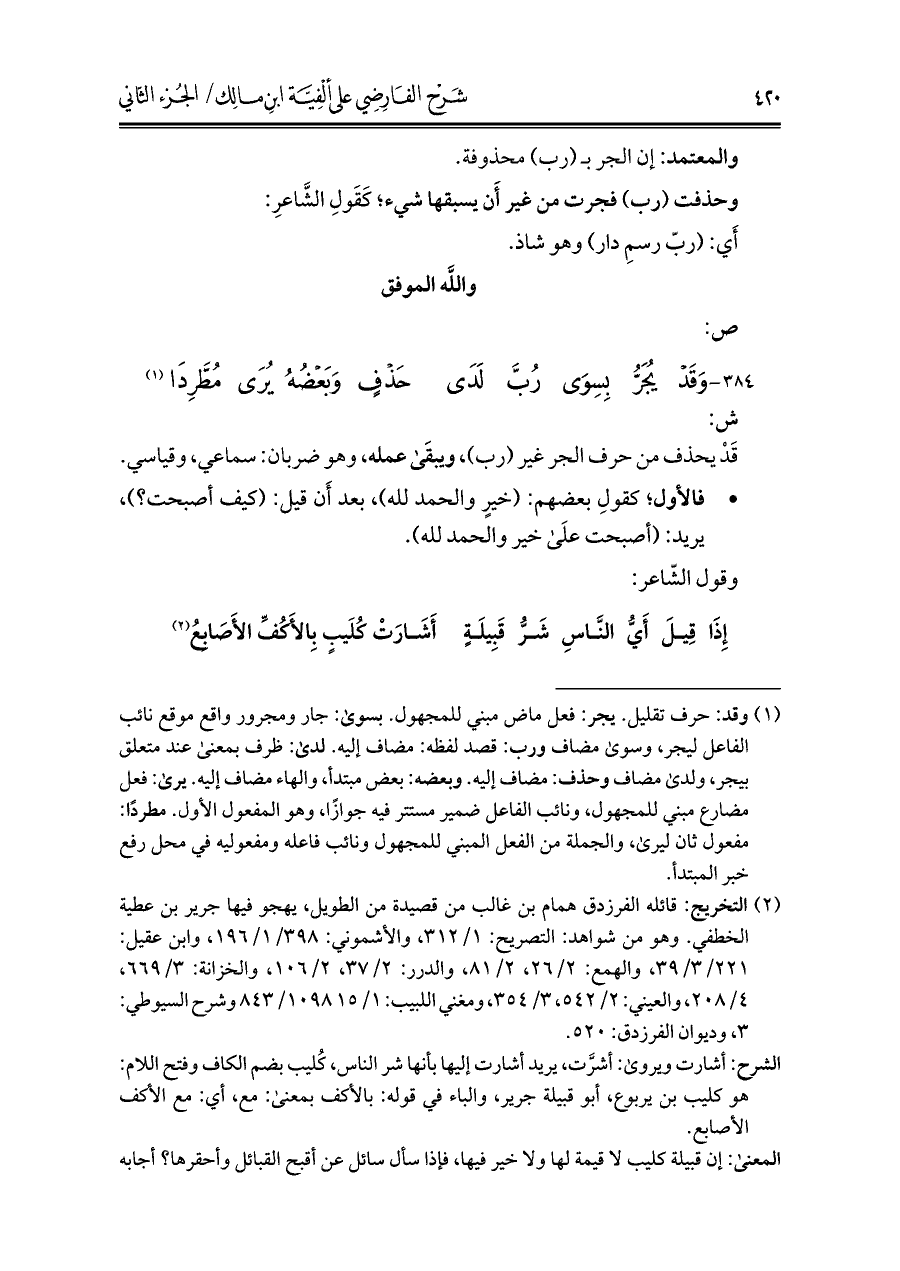 ٤٢٠ شَرْح الفَارِضِي عَلى أَلْفِيَّة ابنِ مَالِك/ الجُزء الثاني
والمعتمد: إن الجر بـ (رب) محذوفة.
وحذفت (رب) فجرت من غير أَن يسبقها شيء؛ كَقَولِ الشَّاعرِ:
أَي: (ربّ رسمِ دار) وهو شاذ.
واللَّه الموفق
ص:
٣٨٤-وَقَدْ يُجَرُّ بِسِوَى رُبَّ لَدَى حَذْفٍ وَبَعْضُهُ يُرَى مُطَّرِدَا (١)
ش:
قَدْ يحذف من حرف الجر غير (رب)، ويبقَىٰ عمله، وهو ضربان: سماعي، وقياسي.
• فالأول؛ كقولِ بعضهم: (خيرٍ والحمد لله)، بعد أَن قيل: (كيف أصبحت؟)،
يريد: (أصبحت علَىٰ خير والحمد لله).
وقول الشّاعر:
إِذَا قِيلَ أَيُّ النَّاسِ شَرُّ قَبِيلَةٍ أَشَارَتْ كُلَيبٍ بِالأَكُفِّ الأَصَابِعُ(٢)
(١) وقد: حرف تقليل. يجر: فعل ماض مبني للمجهول. بسوىٰ: جار ومجرور واقع موقع نائب
الفاعل ليجر، وسوىٰ مضاف ورب: قصد لفظه: مضاف إليه. لدىٰ: ظرف بمعنىٰ عند متعلق
بيجر، ولدىٰ مضاف وحذف: مضاف إليه. وبعضه: بعض مبتدأ، والهاء مضاف إليه. يرىٰ: فعل
مضارع مبني للمجهول، ونائب الفاعل ضمير مستتر فيه جوازًا، وهو المفعول الأول. مطردًا:
مفعول ثان ليرىٰ، والجملة من الفعل المبني للمجهول ونائب فاعله ومفعوليه في محل رفع
خبر المبتدأ.
(٢) التخريج: قائله الفرزدق همام بن غالب من قصيدة من الطويل، يهجو فيها جرير بن عطية
الخطفي. وهو من شواهد: التصريح: ١/ ٣١٢، والأشموني: ٣٩٨/ ١/ ١٩٦، وابن عقيل:
٢٢١/ ٣/ ٣٩، والهمع: ٢/ ٢٦، ٢/ ٨١، والدرر: ٢/ ٣٧، ٢/ ١٠٦، والخزانة: ٣/ ٦٦٩،
٤/ ٢٠٨، والعيني: ٢/ ٥٤٢، ٣/ ٣٥٤، ومغني اللبيب: ١/ ١٥ ١٠٩٨/ ٨٤٣ وشرح السيوطي:
٣، وديوان الفرزدق: ٥٢٠.
الشرح: أشارت ويروىٰ: أشرَّت، يريد أشارت إليها بأنها شر الناس، كُليب بضم الكاف وفتح اللام:
هو كليب بن يربوع، أبو قبيلة جرير، والباء في قوله: بالأكف بمعنىٰ: مع، أي: مع الأكف
الأصابع.
المعنىٰ: إن قبيلة كليب لا قيمة لها ولا خير فيها، فإذا سأل سائل عن أقبح القبائل وأحقرها؟ أجابه